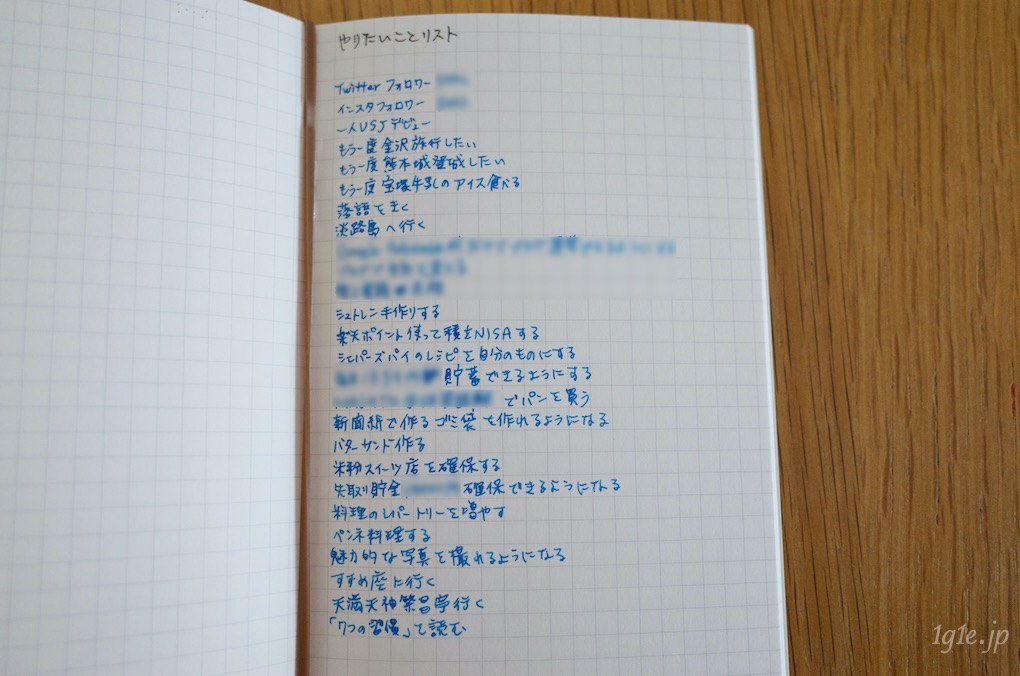 やりたいことリスト
Twitter フォロワー
インスタフォロワー
一人USJデビュー
もう一度金沢旅行したい
もう一度熊本城登城したい
もう一度宝塚牛乳のアイス食べる
落語をきく
淡路島へ行く
シュトレン手作りする
楽天ポイント使って積立NISAする
シェパーズパイのレシピを自分のものにする
貯蓄できるようにする
でパンを買う
新聞紙で作るゴミ袋を作れるようになる
バターサンド作る
米粉スイーツ店を確保する
先取り貯金 確保できるようになる
料理のレパートリーを増やす
ペンネ料理する
魅力的な写真を撮れるようになる
すすめ座に行く
天満天神繁昌亭行く
「7つの習慣」を読む
1g1e.jp